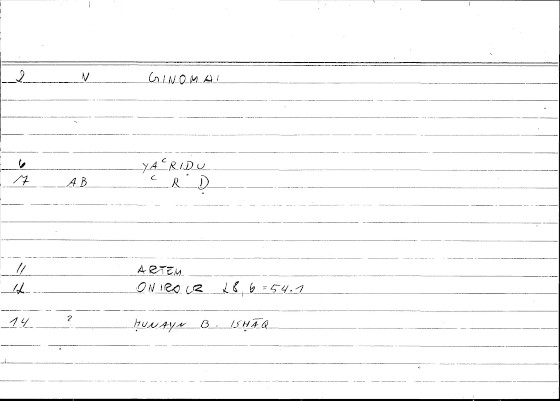 2 N GINOMAI
6 YAʿRIḌU
17 AB ʿ R Ḍ
11 ARTEM
12 ONIROCR 28,6 = 54.1
14 ? ḤUNAYN B. ISḤĀQ